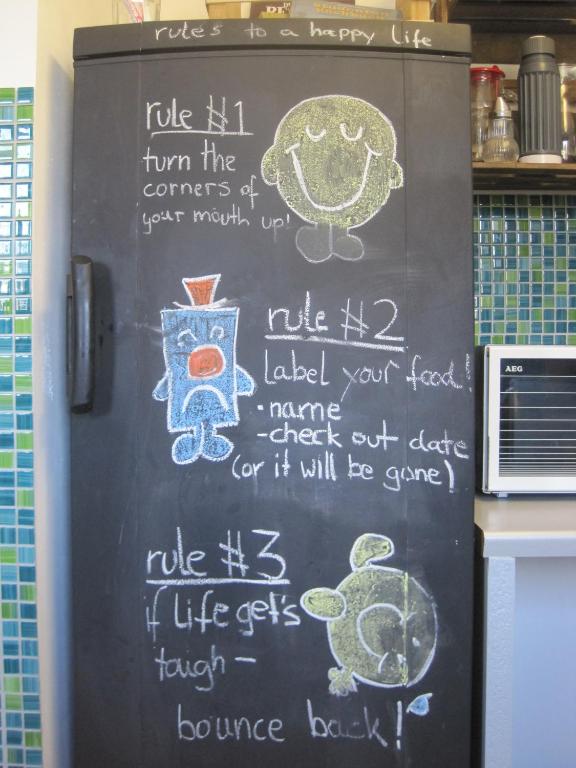 rules to a happy life
rule #1
turn the
corners of
your mouth up!
rule #2
Label your food!
• name
- check out date
(or it will be gone)
rule #3
if Life get's
tough -
bounce back!
AEG